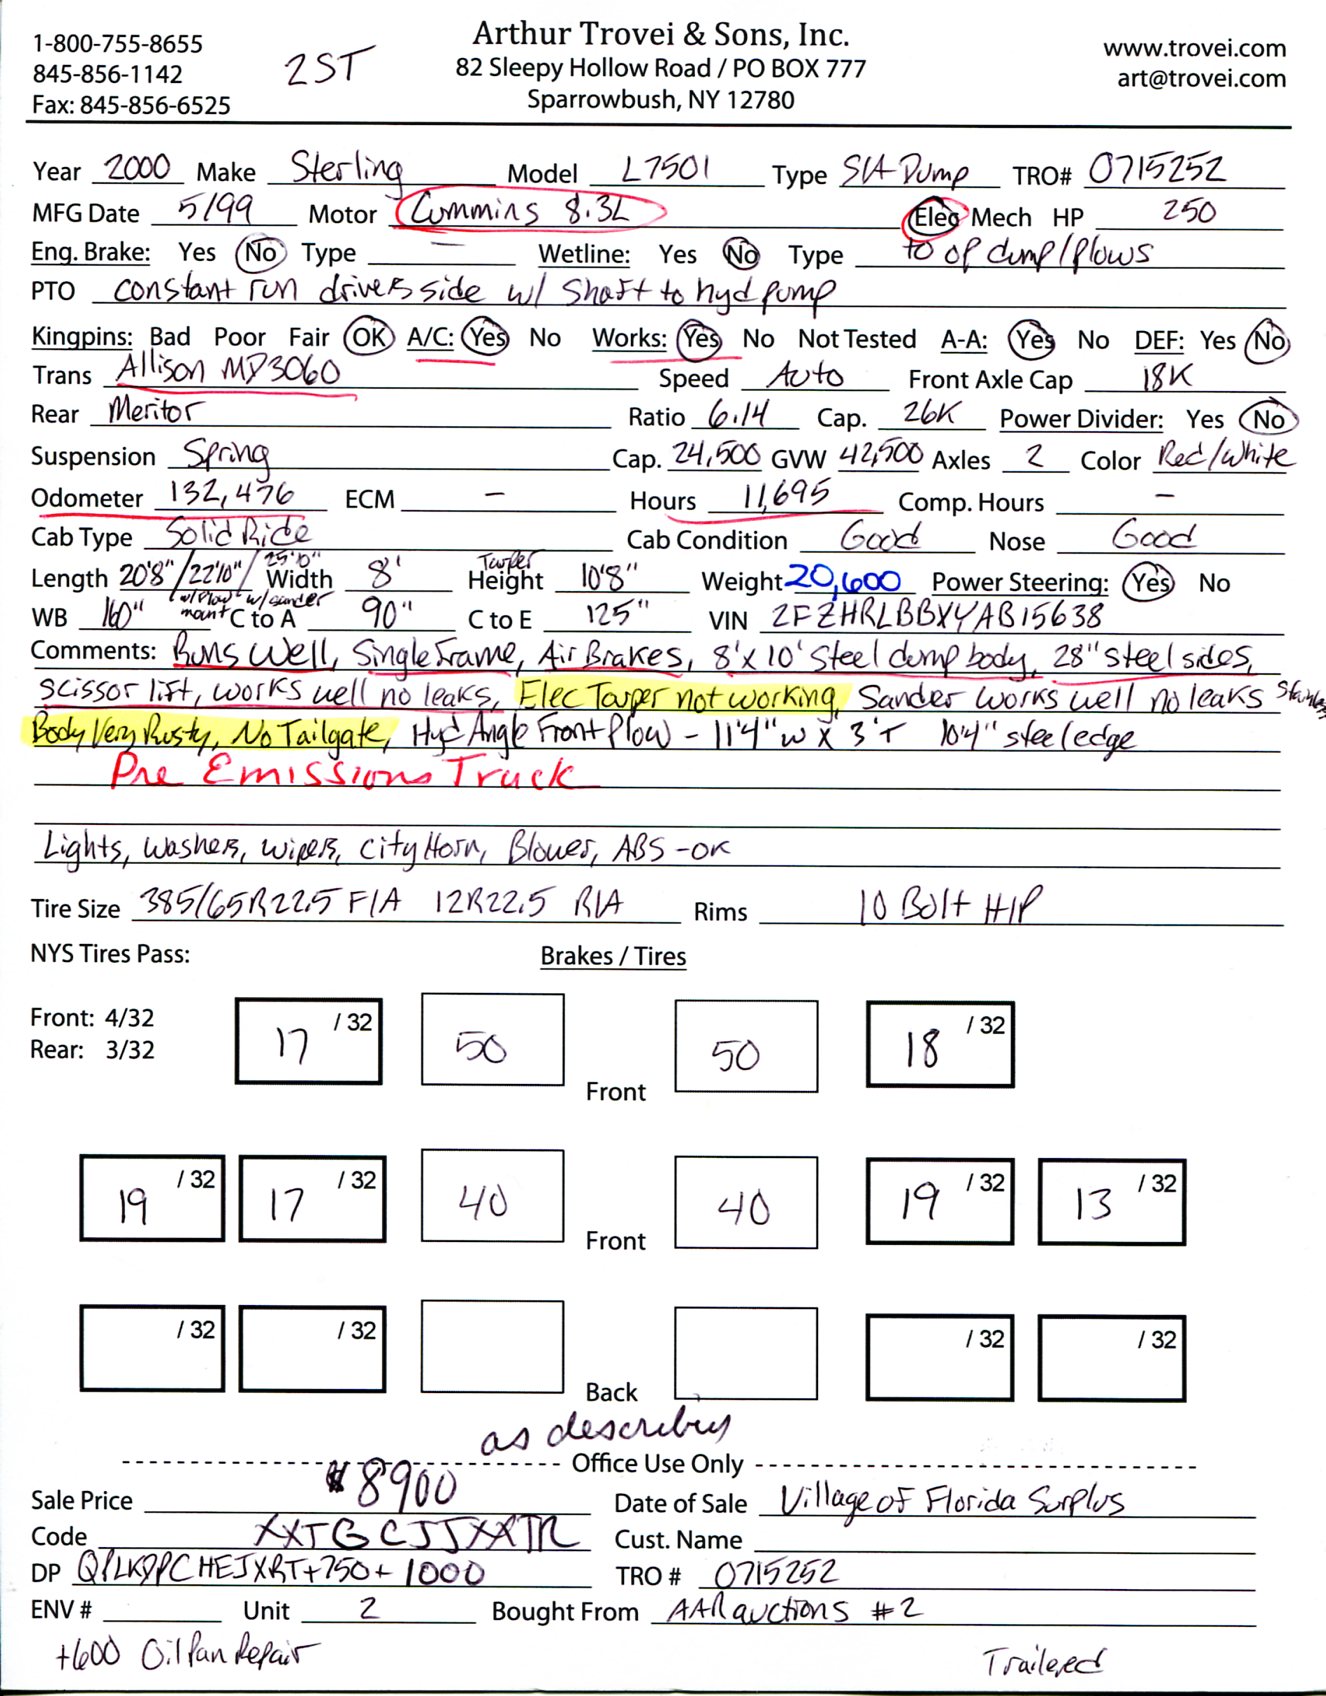 Arthur Trovei & Sons, Inc.
1-800-755-8655
2ST
82 Sleepy Hollow Road / PO BOX 777
www.trovei.com
845-856-1142
Sparrowbush, NY 12780
art@trovei.com
Fax: 845-856-6525
Year 2000 Make Sterling Model L7501 Type S/A Dump TRO# 0715252
MFG Date 5/99 Motor Cummins 8.3L Elec Mech HP 250
Eng. Brake: Yes No Type — Wetline: Yes No Type to op dump/plows
PTO constant run drivers side w/ shaft to hyd pump
Kingpins: Bad Poor Fair OK A/C: Yes No Works: Yes No Not Tested A-A: Yes No DEF: Yes No
Trans Allison MD3060 Speed Auto Front Axle Cap 18K
Rear Meritor Ratio 6.14 Cap. 26K Power Divider: Yes No
Suspension Spring Cap. 24,500 GVW 42,500 Axles 2 Color Red/White
Odometer 132,476 ECM — Hours 11,695 Comp. Hours —
Cab Type Solid Ride Cab Condition Good Nose Good
Length 20'8"/22'10"/25'0" Width 8' Tarper Height 10'8" Weight 20,600 Power Steering: Yes No
w/plow mount w/sander
WB 160" C to A 90" C to E 125" VIN 2FZHRLBBXYAB15638
Comments: Runs Well, Single Frame, Air Brakes, 8'x10' Steel dump body, 28" steel sides,
scissor lift, works well no leaks, Elec Tarper not working, Sander works well no leaks Stainless
Body Very Rusty, No Tailgate, Hyd Angle Front Plow - 11'4"w x 3'T 10'4" steel edge
Pre Emissions Truck
Lights, washers, wipers, city Horn, Blower, ABS - OK
Tire Size 385/65R22.5 F/A 12R22.5 R/A Rims 10 Bolt H/P
NYS Tires Pass: Brakes / Tires
Front: 4/32
Rear: 3/32
17 /32 50 Front 50 18 /32
19 /32 17 /32 40 Front 40 19 /32 13 /32
/32 /32 Back /32 /32
as describes
Office Use Only
Sale Price $8900 Date of Sale Village of Florida Surplus
Code XXTGCJJXXTR Cust. Name
DP TRO # 0715252
ENV # Unit 2 Bought From AAR auctions #2
+600 Oil Pan Repair Trailered